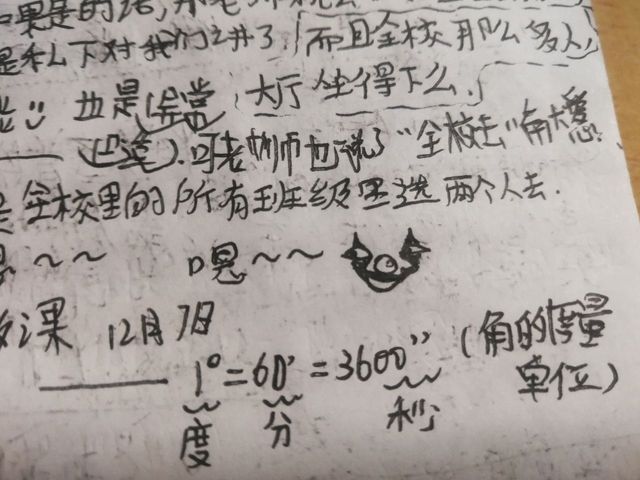 果是的话,
是私下对我们讲了,而且全校那么多人,
也是(异常,大厅坐得下么,
可老师也说了"全校去"的意思
全校里的所有班级里选两个人去.
~~ 嗯~~
课 12月7日
1°=60'=3600'' (角的度量
度 分 秒 单位)